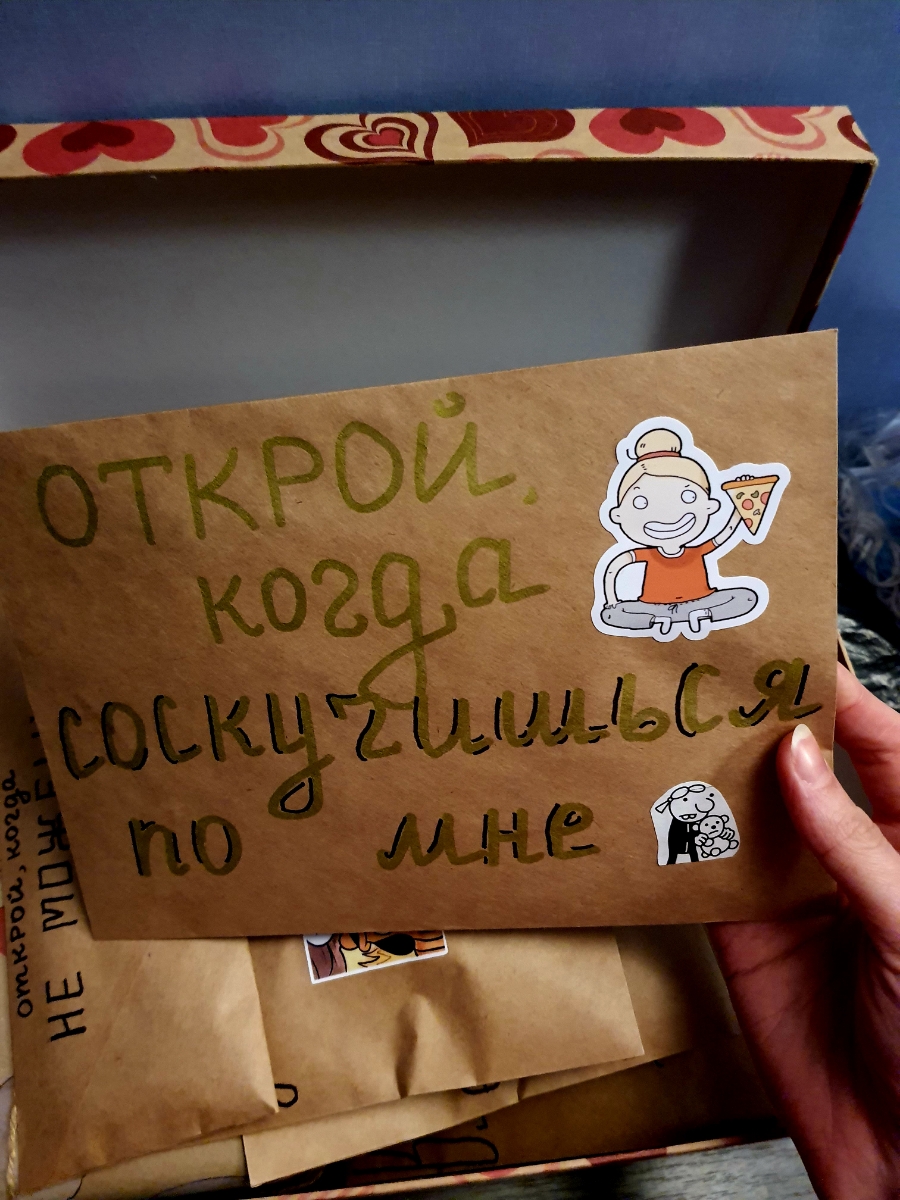 ОТКРОЙ,
когда
соскучишься
по мне
открой, когда
НЕ МОЖЕ